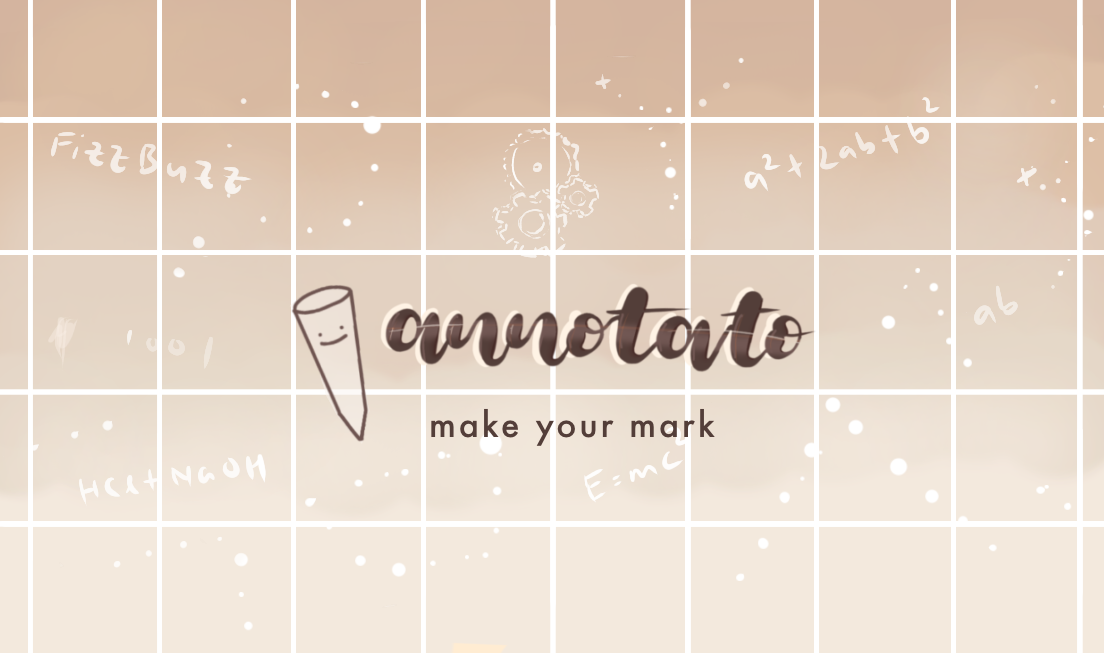 FizzBuzz
a²+2ab+b²
annotato
ab
1001
make your mark
HCl+NaOH
E=mc²